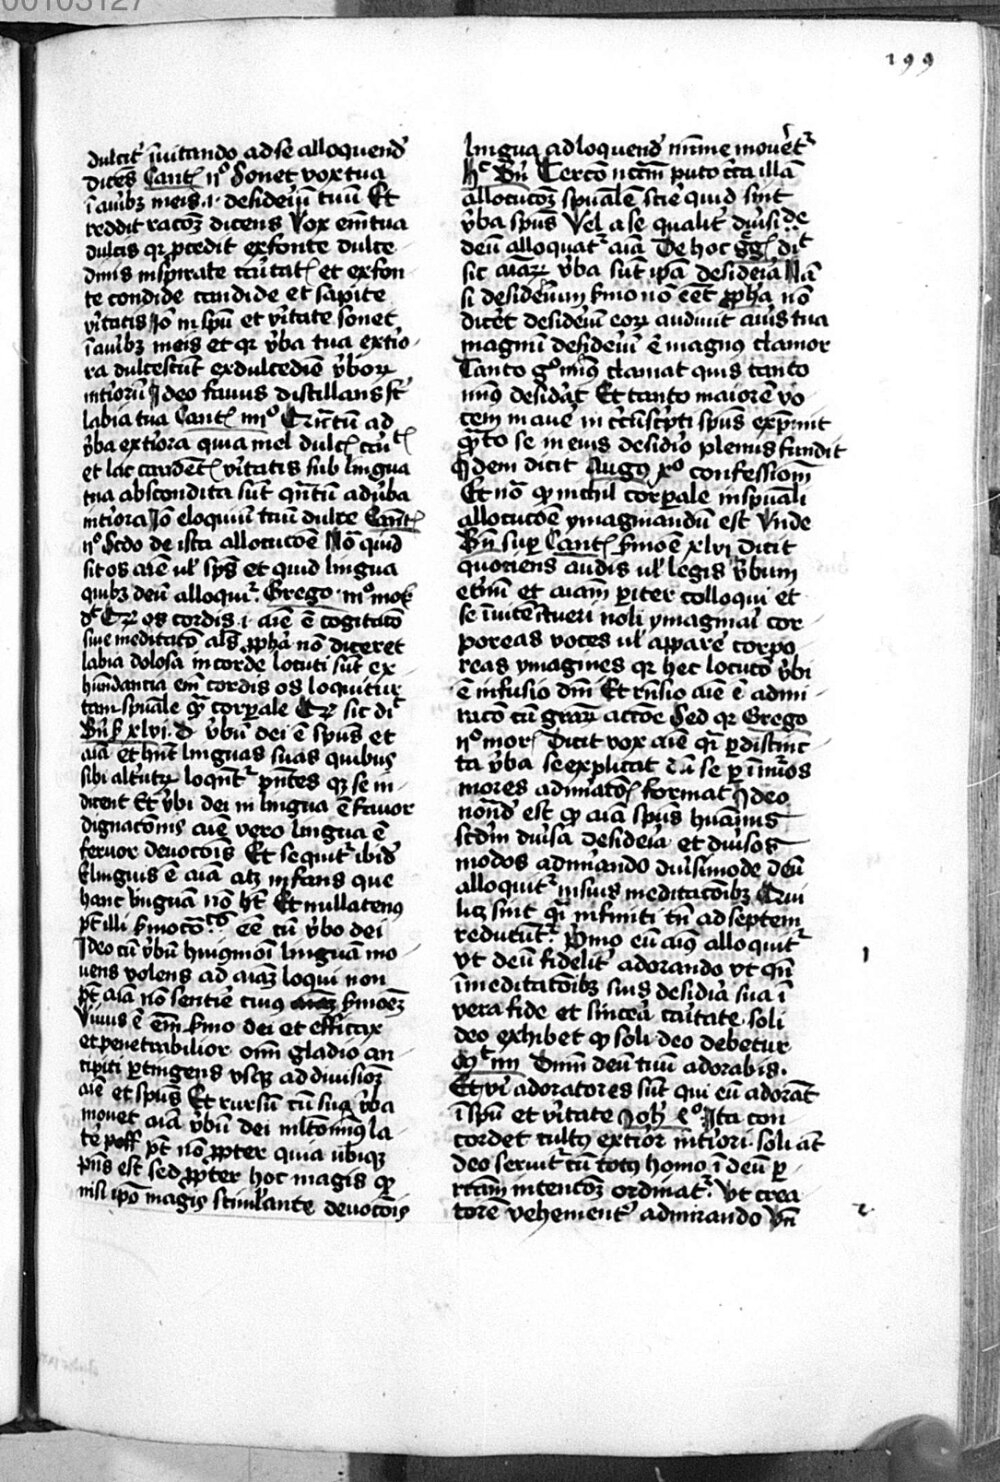 00103127
199
dulcit̄ īuitando ad se alloquend̄
dicēs Cant̄ ijº Sonet vox tua
ī aurib3 meis .i. desideriū tuū Et
reddit racōe3 dicens Vox em̄ tua
dulcis qr p̄cedit ex fonte dulce
dinis inspirate caritat̄ et ex fon
te condide candide et sapite
v̄itatis Jō in sp̄u et v̄itate sonet
ī aurib3 meis et qr v̄ba tua extio
ra dulcescūt ex dulcedīe v̄borꝝ
int̄iorū Ideo fauus distillans sūt
labia tua Cant̄ iiijº Quātū ad
v̄ba ext̄iora quia mel dulc̄
et lac candēt̄ v̄itatis sub lingua
tua abscondita sūt quātū ad v̄ba
int̄iora Jō eloquiū tuū dulce Cant̄
ijº Scdo de ista allocucōe Nō quid
sit os aīe ul̄ sp̄s et quid lingua
quib3 deū alloquit̄ Grego
os cordis .i. aīe ē cogitatō
siue meditatō als̄ ꝓpha nō diceret
labia dolosa in corde locuti sūt ex
hūndancia em̄ cordis os loquitur
tam spūale qm̄ corp̄ale sic dic̄
xlvi v̄bū dei ē sp̄us et
aīa et hn̄t linguas suas quibus
sibi alt̄utrū loquūt̄ pn̄tes q3 se in
dicent Et v̄bi dei in lingua ē fauor
dignatōnis aīe vero lingua ē
feruor deuocōis Et sequit̄ ibid̄
Elinguis ē aīa at3 infans que
hanc linguā nō hēt Et nullatenus
pt̄ illi s̄mocō eē cū v̄bo dei
Ideo cū v̄bū huiqmōi linguā mo
uens volens ad aīam loqui non
pt̄ aīa nō sentīe eius s̄moē3
Viuus ē em̄ s̄mo dei et efficax
et penetrabilior om̄i gladio an
cipiti p̄tingens vsq3 ad diuisiōe3
aīe et sp̄us Et rursū cū sua v̄ba
mouet aīa v̄bū dei mlto min9 la
pt̄ nō ꝓpter quia ubiq3
pn̄s est sed ꝓpter hoc magis qꝫ
nisi ipō magis stimulante deuocōis
lingua ad loquend̄ mīnime mouet̄
Tercō nctm̄ puto cīta illā
allocucōe3 spūalē scīe quid sint
v̄ba sp̄us Vel a se qualit̄ diuīsi de
deū alloquat̄ aīa De hoc Gḡ dic̄
sic aīarꝝ v̄ba sūt ip̄a desideria Nā
si desideriū s̄mo nō eēt ꝓpha nō
dicēt desideriū eorꝝ audiuit auris tua
magnū desideriū ē magnus clamor
Tanto gº min9 clamat quis tanto
min9 desid̄at Et tanto maiorē vo
cem in aurē incircūsc̄pti sp̄us exp̄mit
qͣnto se in eius desid̄io plenius fundit
Idem dicit Augus xº confessionū
Et nō qꝫ nichil corp̄ale in spūali
allocucōe ymaginandū est Vnde
Bn̄ sup̄ Cant̄ s̄mōe xlvi dicit
quociens audis ul̄ legis v̄bum
et̄nū et aīam p̄iter colloqui et
se īuicē ītueri noli ymaginai cor
poreas voces ul̄ appare corpo
reas ymagines qr hec locucō v̄bi
ē infusio doni Et rn̄sio aīe ē admi
racō cū grārꝝ actōe Sed qr Grego
ijº mor̄ dicit vox aīe qͥ p̄ distinc
ta v̄ba se explicat dū se p̄ īnūos
mores admiatōs format Ideo
nōnd̄ est qꝫ aīa sp̄us huānus
scdm̄ diūsa desideria et diūsos
modos admirando diūsimode deū
alloquit̄ in suis meditacōib3 Qui
lic3 sint qͥ infiniti tn̄ ad septem
reducūt̄ p̄mo eū aius alloquit̄
vt deū fidelit̄ adorando vt qn̄
ī meditacōib3 suis desid̄ia sua ī
vera fide et sincera cāitate soli
deo exhibet qꝫ soli deo debetur
Mt̄ iiij Dnm̄ deū tuū adorabis
Et v̄i adoratores sūt qui eū adorāt
ī sp̄u et v̄itate Joh̄ iiijº Ita con
cordet cultus ext̄ior int̄iori soli āt
deo seruit̄ cū totus homo ī deū p̄
rectam intencōe3 ordinat̄ Vt crea
torē vehement̄ admirando Vn̄
1
2